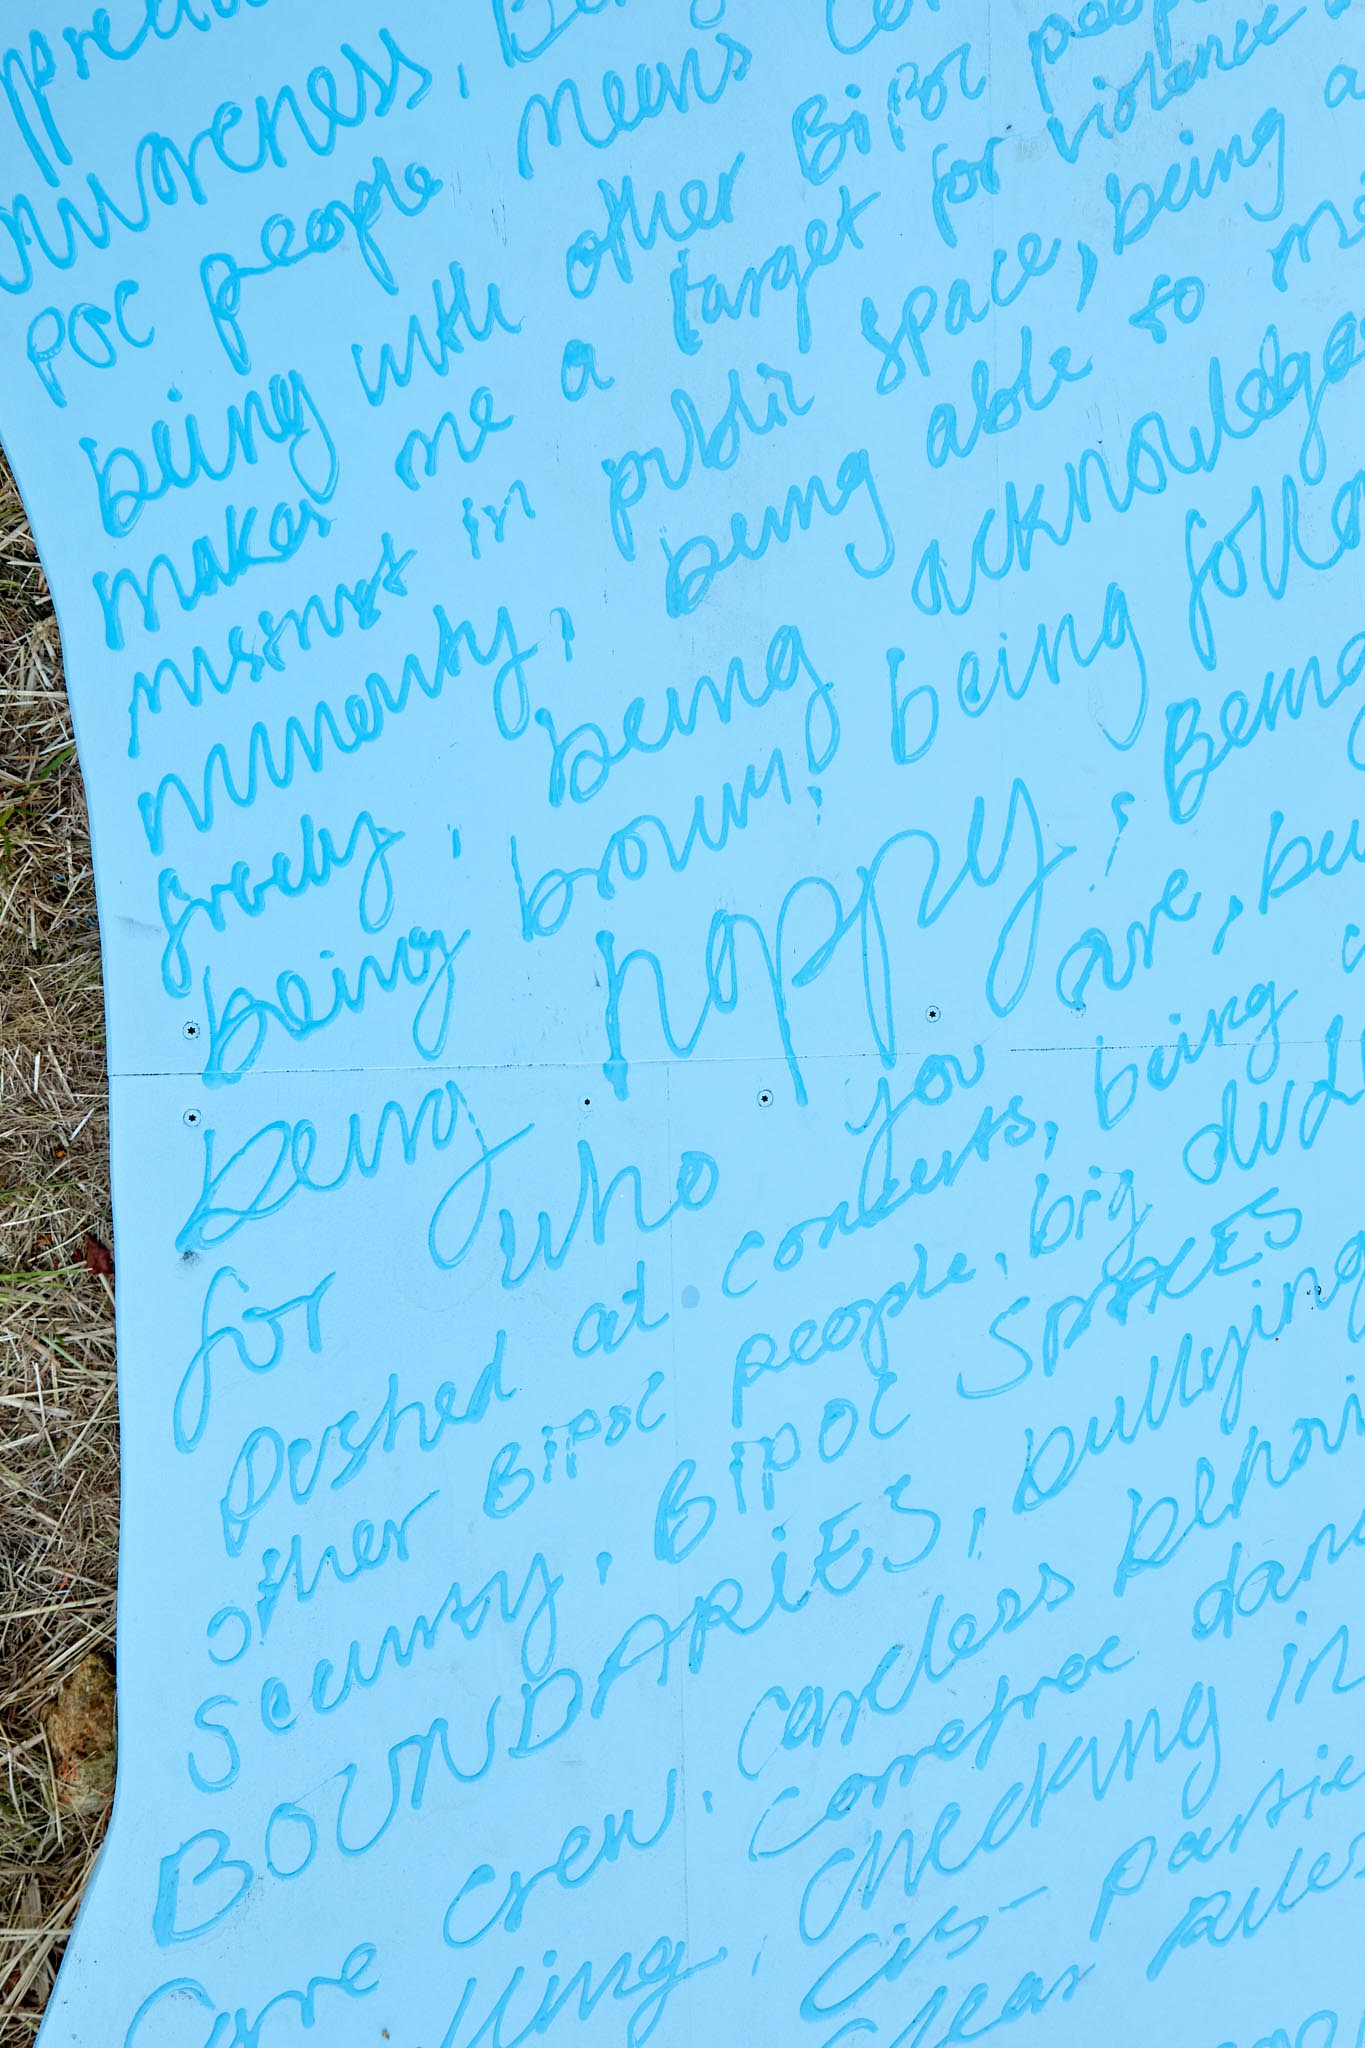 awareness, Being
POC people means
being with other BiPoC people
makes me a target for violence
in public space, being a
minority, being able to
freely, being acknowledged
being brown, being followed
being happy, Being
for who you are, being
pushed at concerts, being
other BiPoC people, big dudes
security, BiPOC SPACES
BOUNDARIES, bullying
Care crew, careless behavi
carefree danc
checking in
cis- partie
clear rules